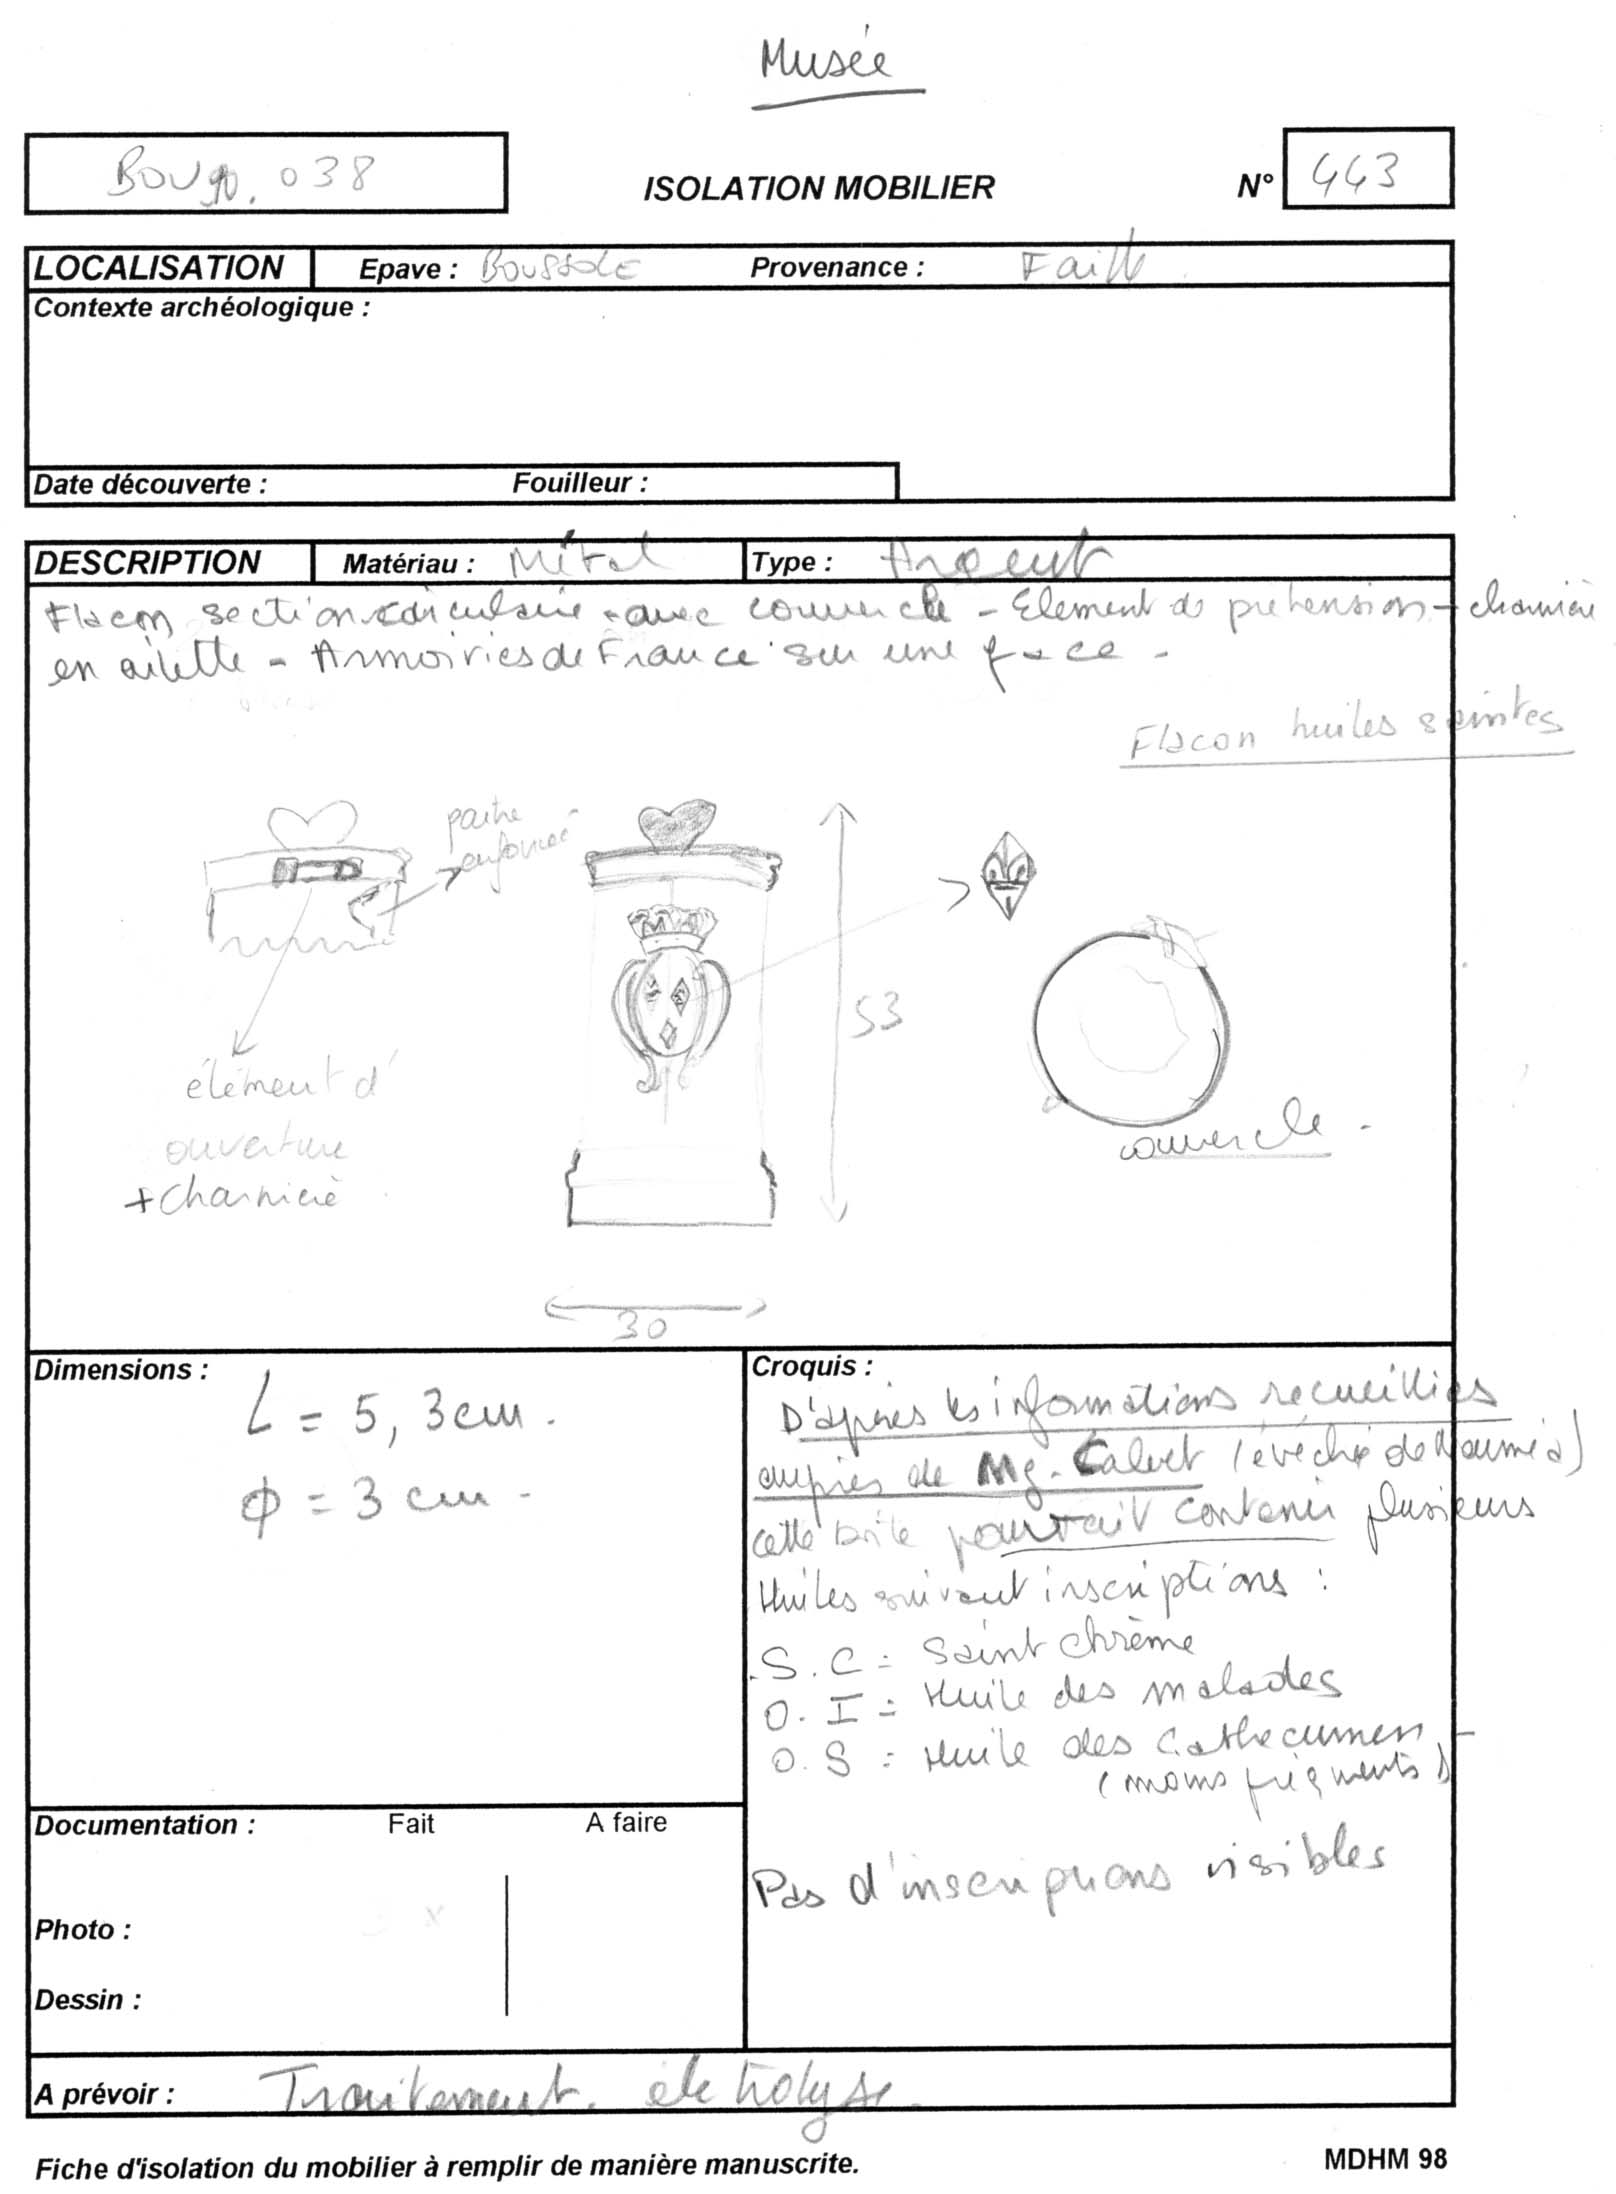 Musée
038
ISOLATION MOBILIER
N° 443
LOCALISATION Epave : BOUSSOLE Provenance : Faille
Contexte archéologique :
Date découverte : Fouilleur :
DESCRIPTION Matériau : Métal Type : Argent
Flacon section circulaire - avec couvercle - Element de préhension - charnière
en ailette - Armoiries de France sur une face -
Flacon huiles saintes
partie
enfoncée
53
élément d'
ouverture
+ charnière
couvercle -
30
Dimensions :
L = 5,3 cm.
ϕ = 3 cm -
Croquis :
D'après les informations recueillies
auprès de Mg. Calvet (évéché de Nouméa)
cette boîte pourrait contenir plusieurs
Huiles suivant inscriptions :
S.C = Saint chrème
O.I = Huile des malades
O.S = Huile des Cathecumen -
(moins fréquents)
Pas d'inscriptions visibles
Documentation : Fait A faire
Photo : x
Dessin :
A prévoir : Traitement. électrolyse.
Fiche d'isolation du mobilier à remplir de manière manuscrite.
MDHM 98